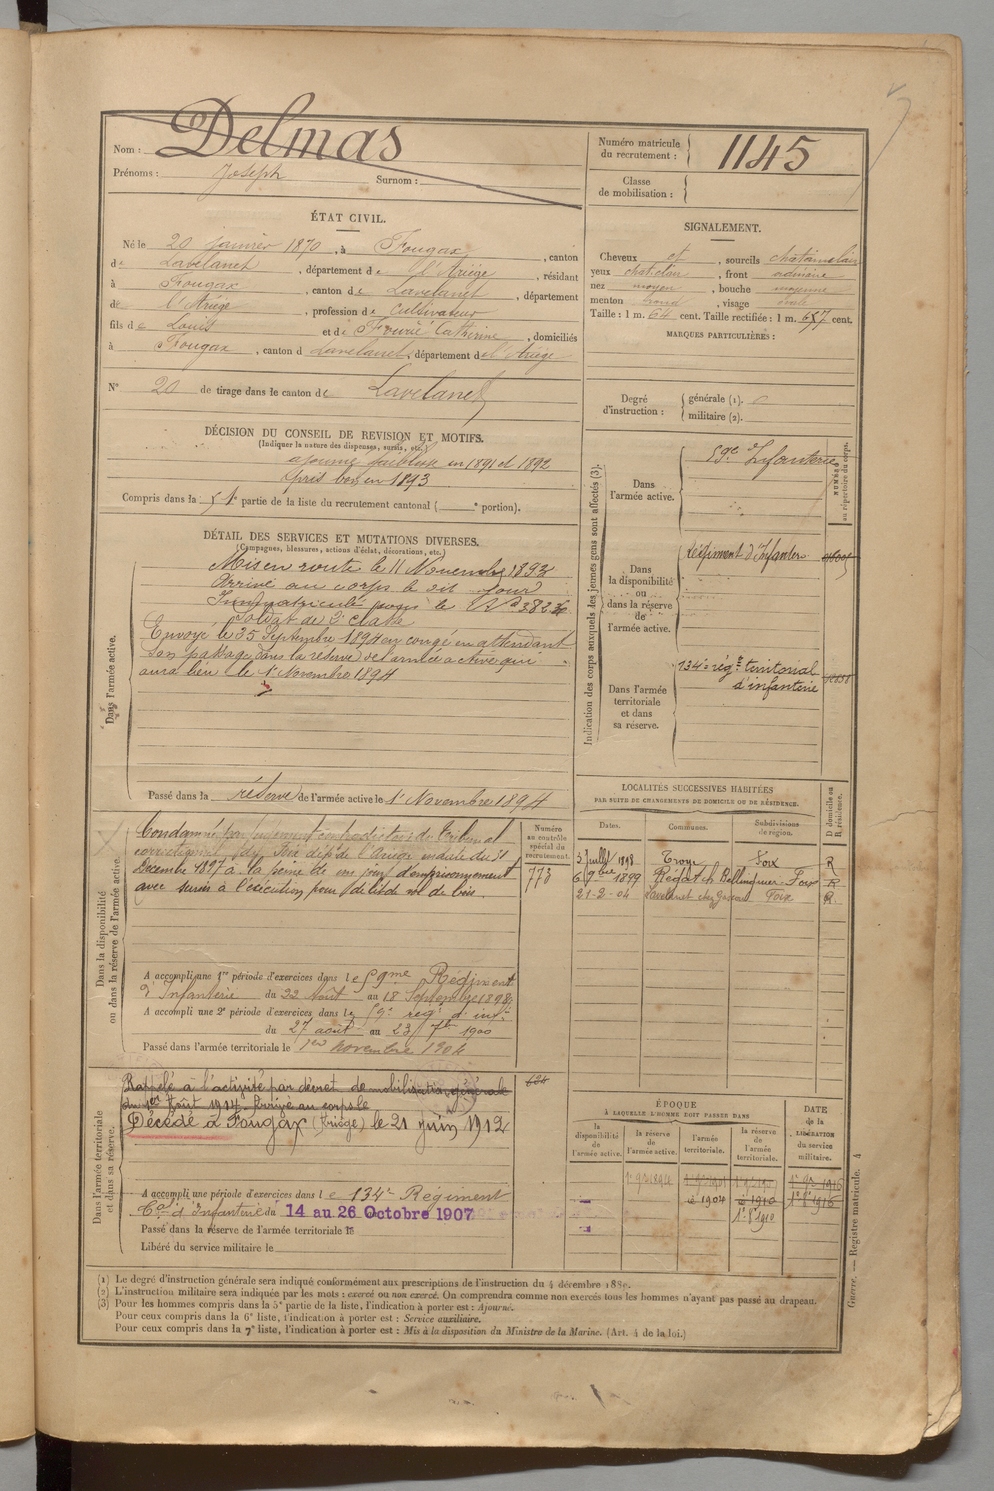 Nom : Delmas
Prénoms : Joseph Surnom :
Numéro matricule du recrutement : 1145
Classe de mobilisation :
ÉTAT CIVIL.
Né le 20 janvier 1870, à Fougax, canton
de Lavelanet, département de l'Ariège, résidant
à Fougax, canton de Lavelanet, département
de l'Ariège, profession de Cultivateur
fils de Louis et de Fourié Catherine, domiciliés
à Fougax, canton d Lavelanet, département de l'Ariège
N° 20 de tirage dans le canton de Lavelanet
SIGNALEMENT.
Cheveux et, sourcils chatainclair
yeux chat clair, front ordinaire
nez moyen, bouche moyenne
menton rond, visage ovale
Taille : 1 m. 64 cent. Taille rectifiée : 1 m. 657 cent.
MARQUES PARTICULIÈRES :
Degré d'instruction : générale (1).
militaire (2).
DÉCISION DU CONSEIL DE REVISION ET MOTIFS.
(Indiquer la nature des dispenses, sursis, etc.)
ajourné faiblesse en 1891 et 1892
pris bon en 1893
Compris dans la 1e partie de la liste du recrutement cantonal ( e portion).
DÉTAIL DES SERVICES ET MUTATIONS DIVERSES.
(Campagnes, blessures, actions d'éclat, décorations, etc.)
Dans l'armée active.
Mis en route le 11 Novembre 1893
Arrivé au corps le dit jour
Immatriculé sous le N° 3823
Soldat de 2e classe
Envoyé le 25 Septembre 1894 en congé en attendant
son passage dans la réserve de l'armée active qui
aura lieu le 1r Novembre 1894
Passé dans la réserve de l'armée active le 1r Novembre 1894
Indication des corps auxquels les jeunes gens sont affectés (3).
NUMÉROS au répertoire du corps.
Dans l'armée active.
59e Infanterie
Dans la disponibilité ou dans la réserve de l'armée active.
Régiment d'Infanterie
Dans l'armée territoriale et dans sa réserve.
134e rég.t territorial
d'infanterie
LOCALITÉS SUCCESSIVES HABITÉES
PAR SUITE DE CHANGEMENTS DE DOMICILE OU DE RÉSIDENCE.
Dates. Communes. Subdivisions de région. D domicile ou R résidence.
3 Juillet 1898 Troye Foix R
6 9bre 1899 Régat ch Bellinguier Foix R
21-2-04 Lavelanet Foix R
Dans la disponibilité ou dans la réserve de l'armée active.
Numéro au contrôle spécial du recrutement.
773
Condamné par jugement contradictoire du Tribunal
correctionnel de Foix dépt de l'Ariège en date du 31
Décembre 1897 à la peine de un jour d'emprisonnement
avec sursis à l'exécution, pour délit de vol de bois.
A accompli une 1re période d'exercices dans le 59me Régiment
d'Infanterie du 22 Août au 18 Septembre 1898
A accompli une 2e période d'exercices dans le 59e reg. d'inf.ie
du 27 août au 23 7bre 1900
Passé dans l'armée territoriale le 1er novembre 1904
Dans l'armée territoriale et dans sa réserve.
624
Rappelé à l'activité par décret de mobilisation générale
du 1er Août 1914. Arrivé au corps le
Décédé à Fougax (Ariège) le 21 juin 1912
A accompli une période d'exercices dans le 134e Régiment
d'Infanterie du 14 au 26 Octobre 1907
Passé dans la réserve de l'armée territoriale le
Libéré du service militaire le
ÉPOQUE
À LAQUELLE L'HOMME DOIT PASSER DANS
la disponibilité de l'armée active.
la réserve de l'armée active.
l'armée territoriale.
la réserve de l'armée territoriale.
DATE de la LIBÉRATION du service militaire.
1904 1910
1r 8 1910
(1) Le degré d'instruction générale sera indiqué conformément aux prescriptions de l'instruction du 4 décembre 1889.
(2) L'instruction militaire sera indiquée par les mots : exercé ou non exercé. On comprendra comme non exercés tous les hommes n'ayant pas passé au drapeau.
(3) Pour les hommes compris dans la 5e partie de la liste, l'indication à porter est : Ajourné.
Pour ceux compris dans la 6e liste, l'indication à porter est : Service auxiliaire.
Pour ceux compris dans la 7e liste, l'indication à porter est : Mis à la disposition du Ministre de la Marine. (Art. 4 de la loi.)
Guerre. — Registre matricule. 4